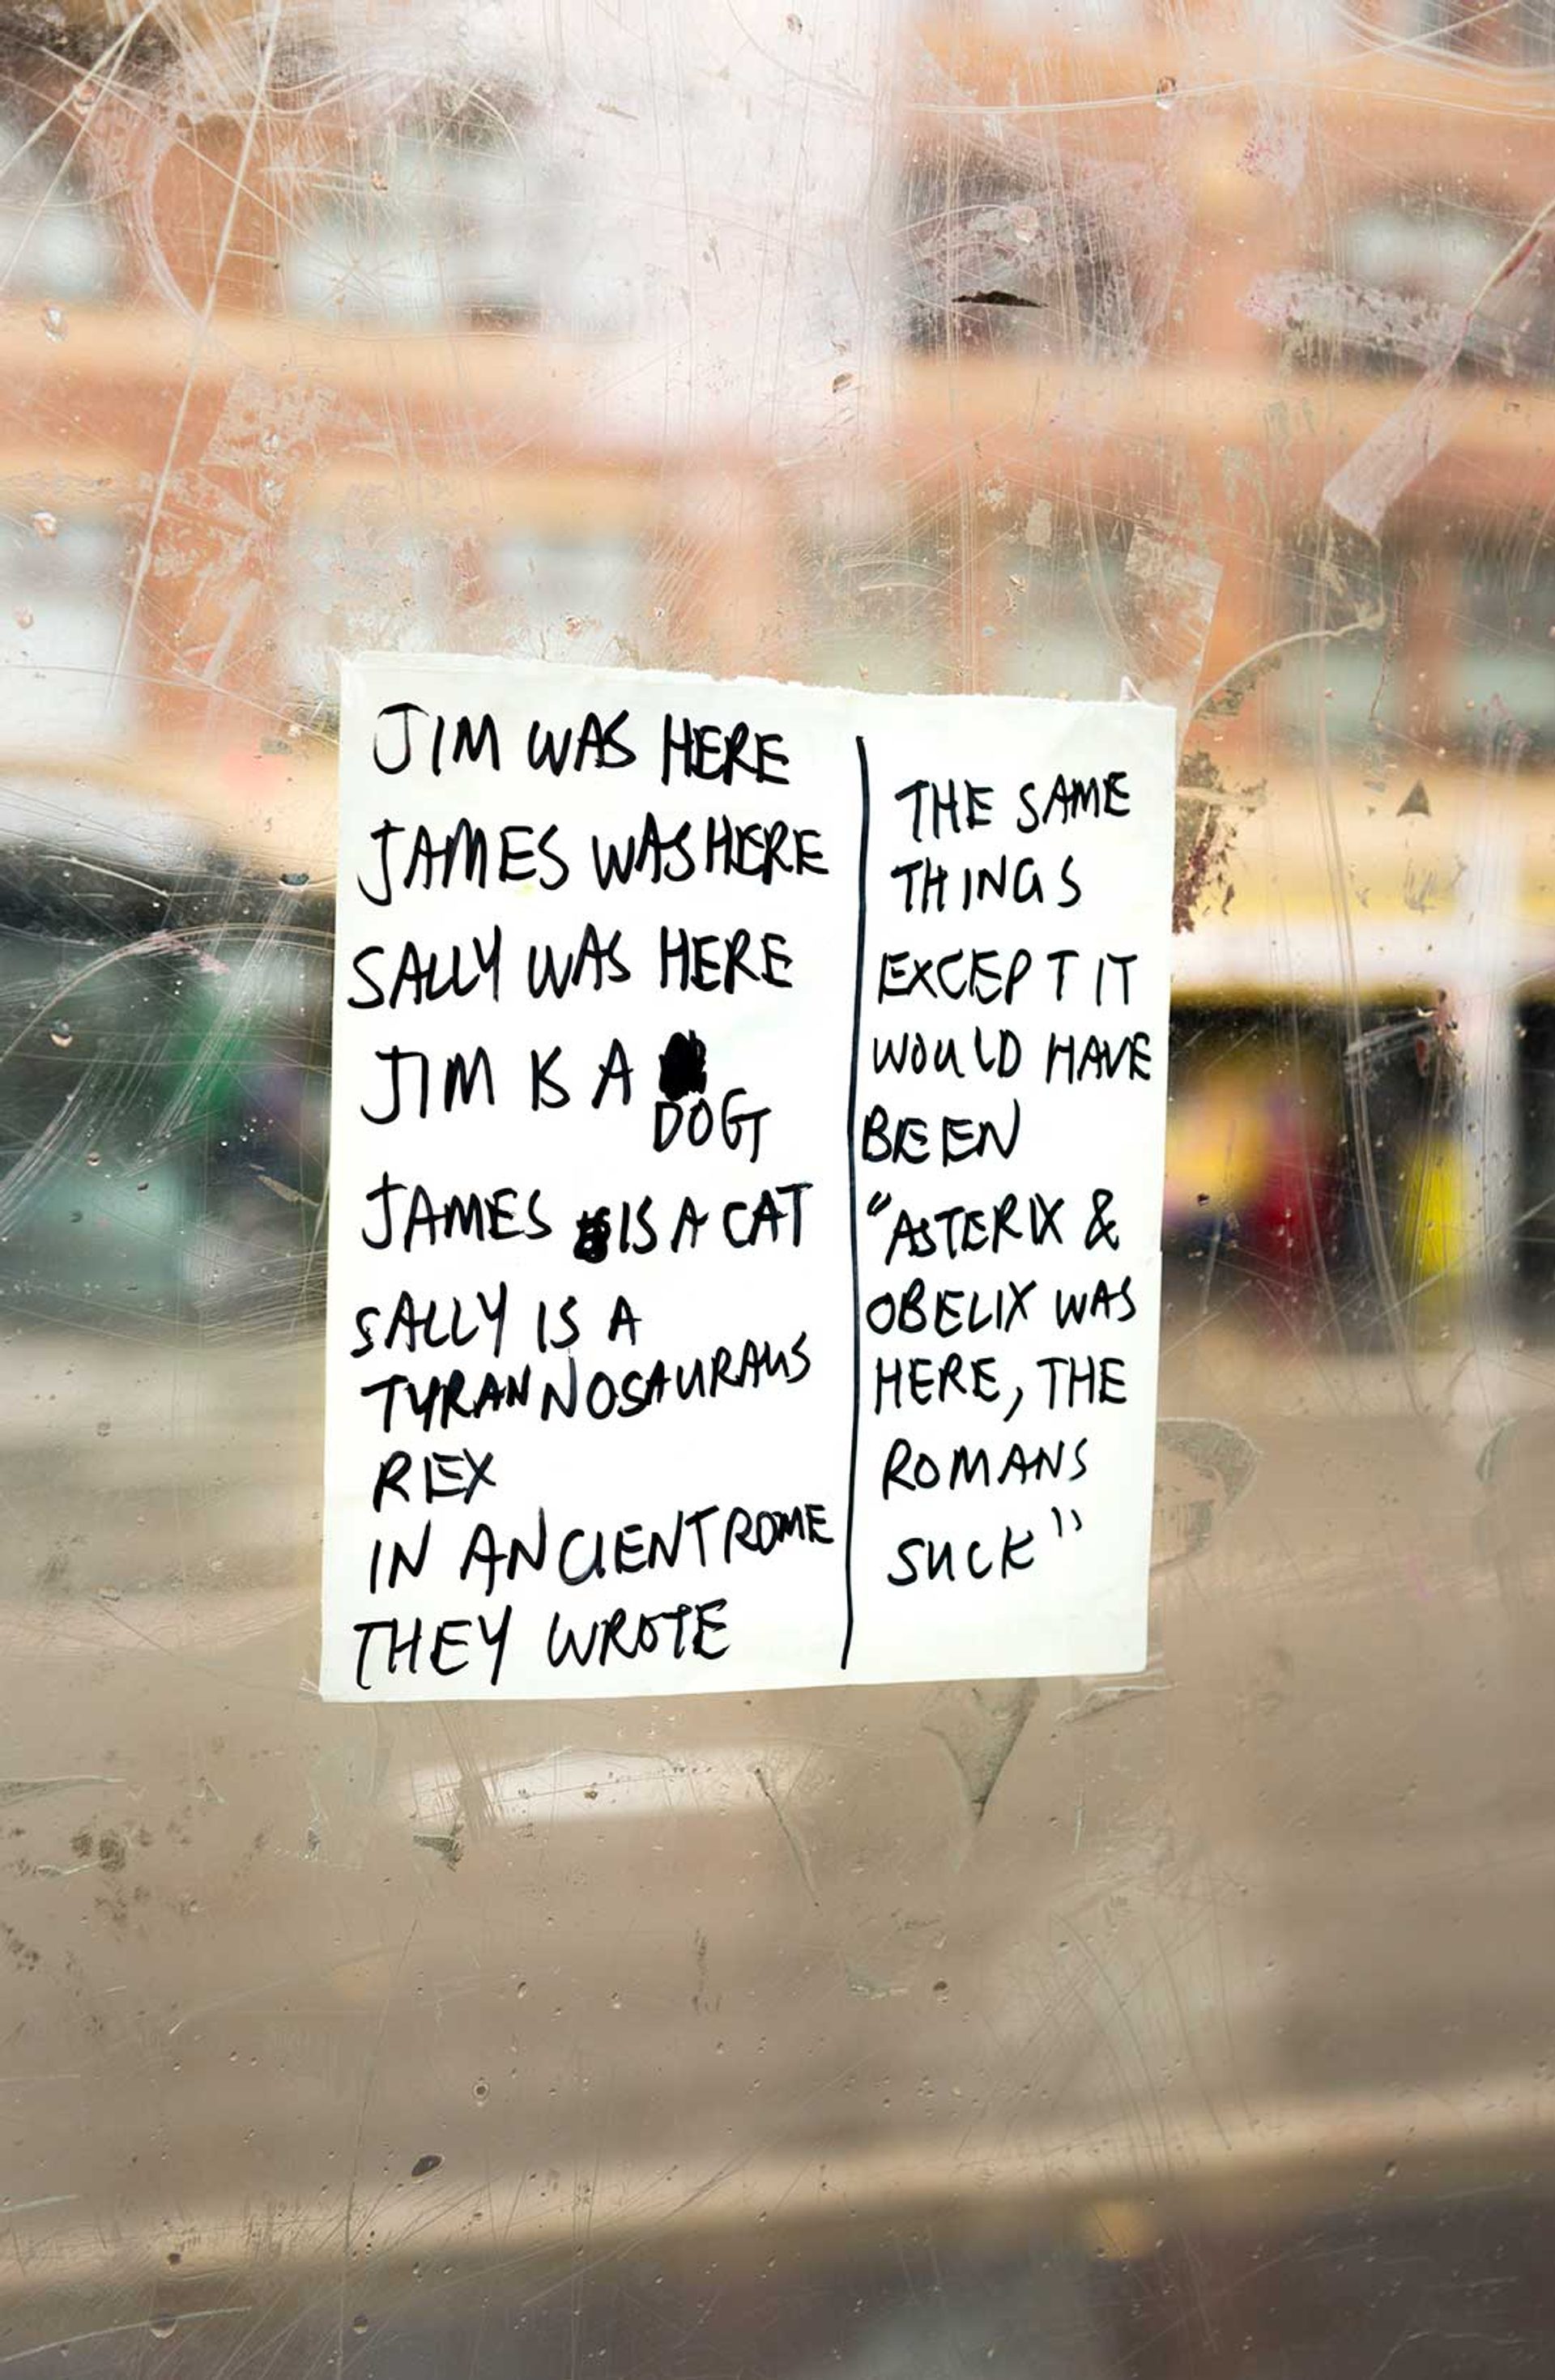 JIM WAS HERE
JAMES WAS HERE
SALLY WAS HERE
JIM IS A
DOG
JAMES IS A CAT
SALLY IS A
TYRANNOSAURAUS
REX
IN ANCIENT ROME
THEY WROTE
THE SAME
THINGS
EXCEPT IT
WOULD HAVE
BEEN
"ASTERIX &
OBELIX WAS
HERE, THE
ROMANS
SUCK"